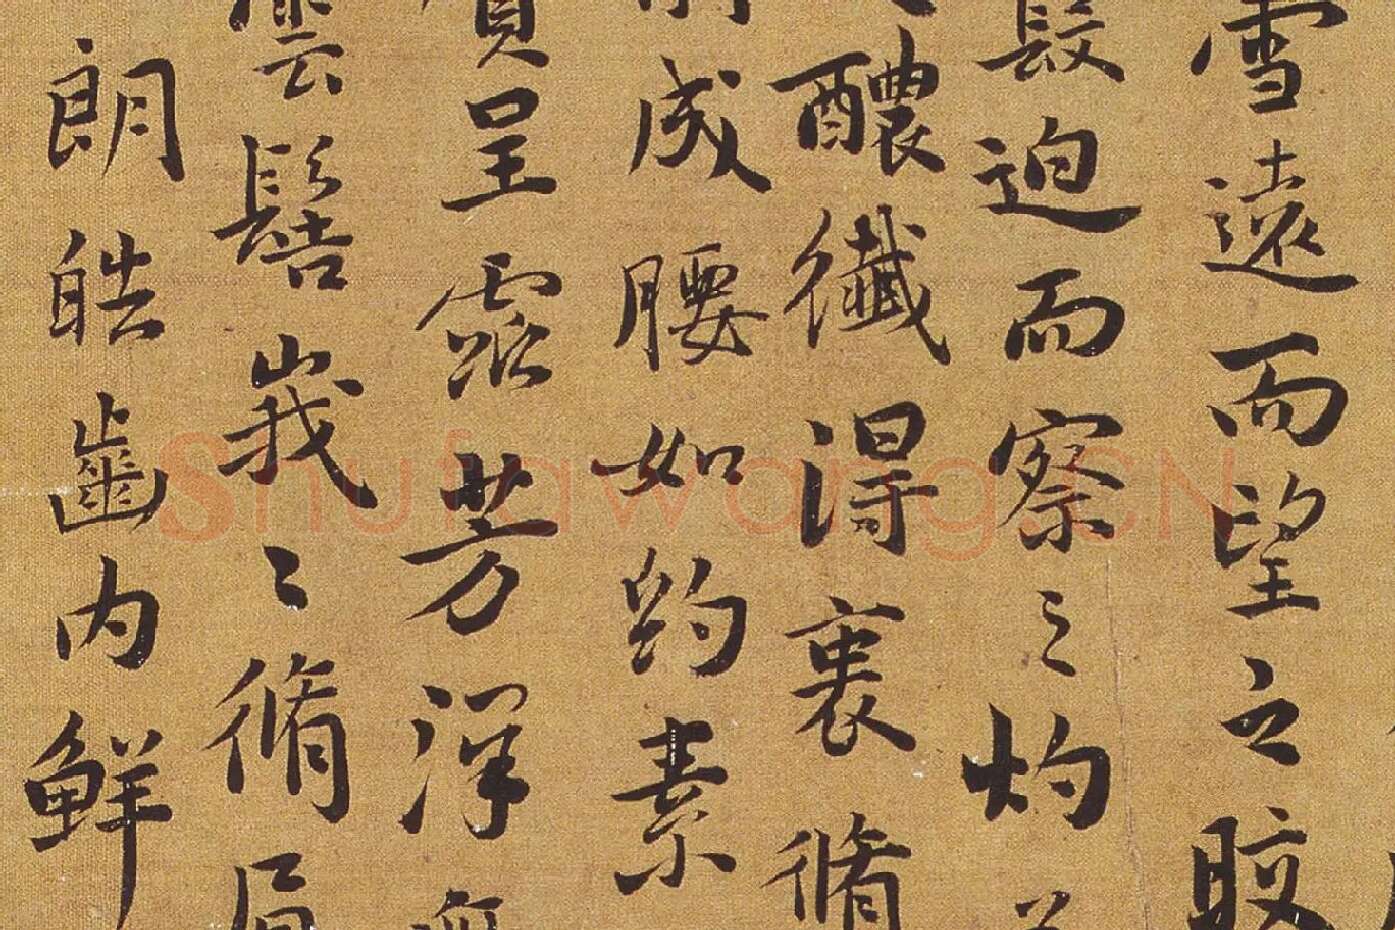 雪遠而望之皎
霞迫而察之灼
醲纖得衷脩
成腰如約素
質呈露芳澤無
雲髻峩〻脩眉
朗皓齒内鮮
Shufawang.CN